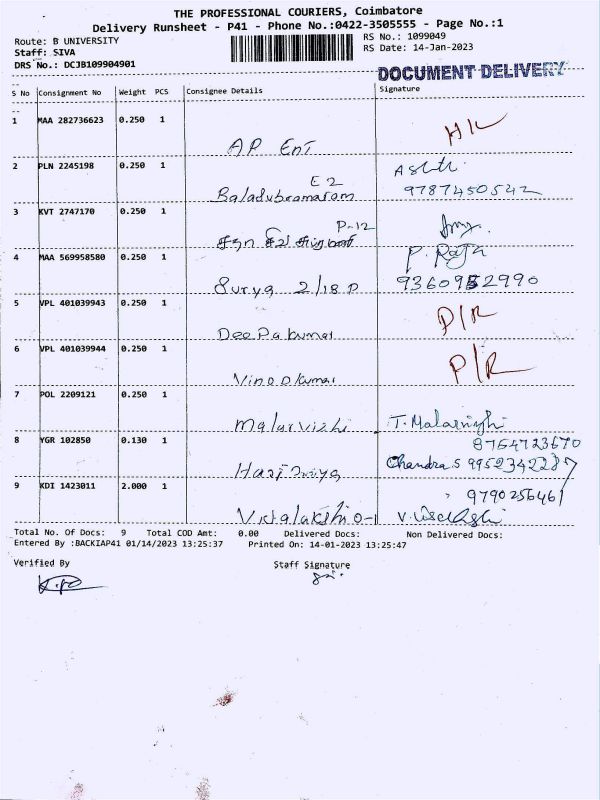 THE PROFESSIONAL COURIERS, Coimbatore
Delivery Runsheet - P41 - Phone No.:0422-3505555 - Page No.:1
Route: B UNIVERSITY
RS No.: 1099049
Staff: SIVA
RS Date: 14-Jan-2023
DRS No.: DCJB109904901
DOCUMENT DELIVERY
S No Consignment No Weight PCS Consignee Details Signature
1 MAA 282736623 0.250 1
AP Ent
2 PLN 2245198 0.250 1
E2
9787450542
3 KVT 2747170 0.250 1
P-12
4 MAA 569958580 0.250 1 P. Raja
Surya 2/18 P 9360952990
5 VPL 401039943 0.250 1
Deepakumar
6 VPL 401039944 0.250 1
Vinodkumar
7 POL 2209121 0.250 1
Malarvizhi
8 YGR 102850 0.130 1 8754723670
Chandra.S 9952342287
9 KDI 1423011 2.000 1 9790256461
Total No. Of Docs: 9 Total COD Amt: 0.00 Delivered Docs: Non Delivered Docs:
Entered By :BACKIAP41 01/14/2023 13:25:37 Printed On: 14-01-2023 13:25:47
Verified By Staff Signature